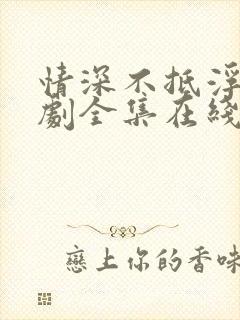 情深不抵浮
劇全集在綫
戀上你的香味